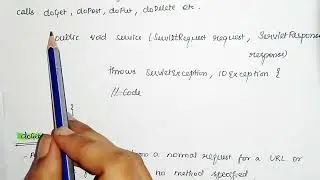 calls doGet, doPost, doPut, doDelete etc.
public void service (ServletRequest request, ServletResponse
response)
throws ServletException, IOException {
// Code
}
from a normal request for a URL or
no method specified